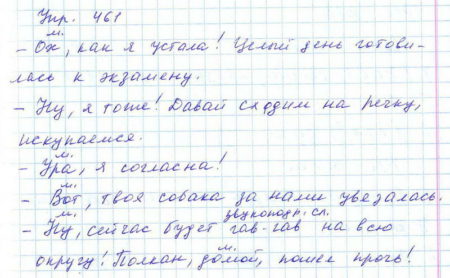 Упр. 461
м.
– Ох, как я устала! Целый день готови-
лась к экзамену.
– Ну, я тоже! Давай сходим на речку,
искупаемся.
м.
– Ура, я согласна!
м.
– Вот, твоя собака за нами увязалась.
м. звукоподр. сл.
– Ну, сейчас будет гав-гав на всю
м.
округу! Полкан, домой, пошел прочь!